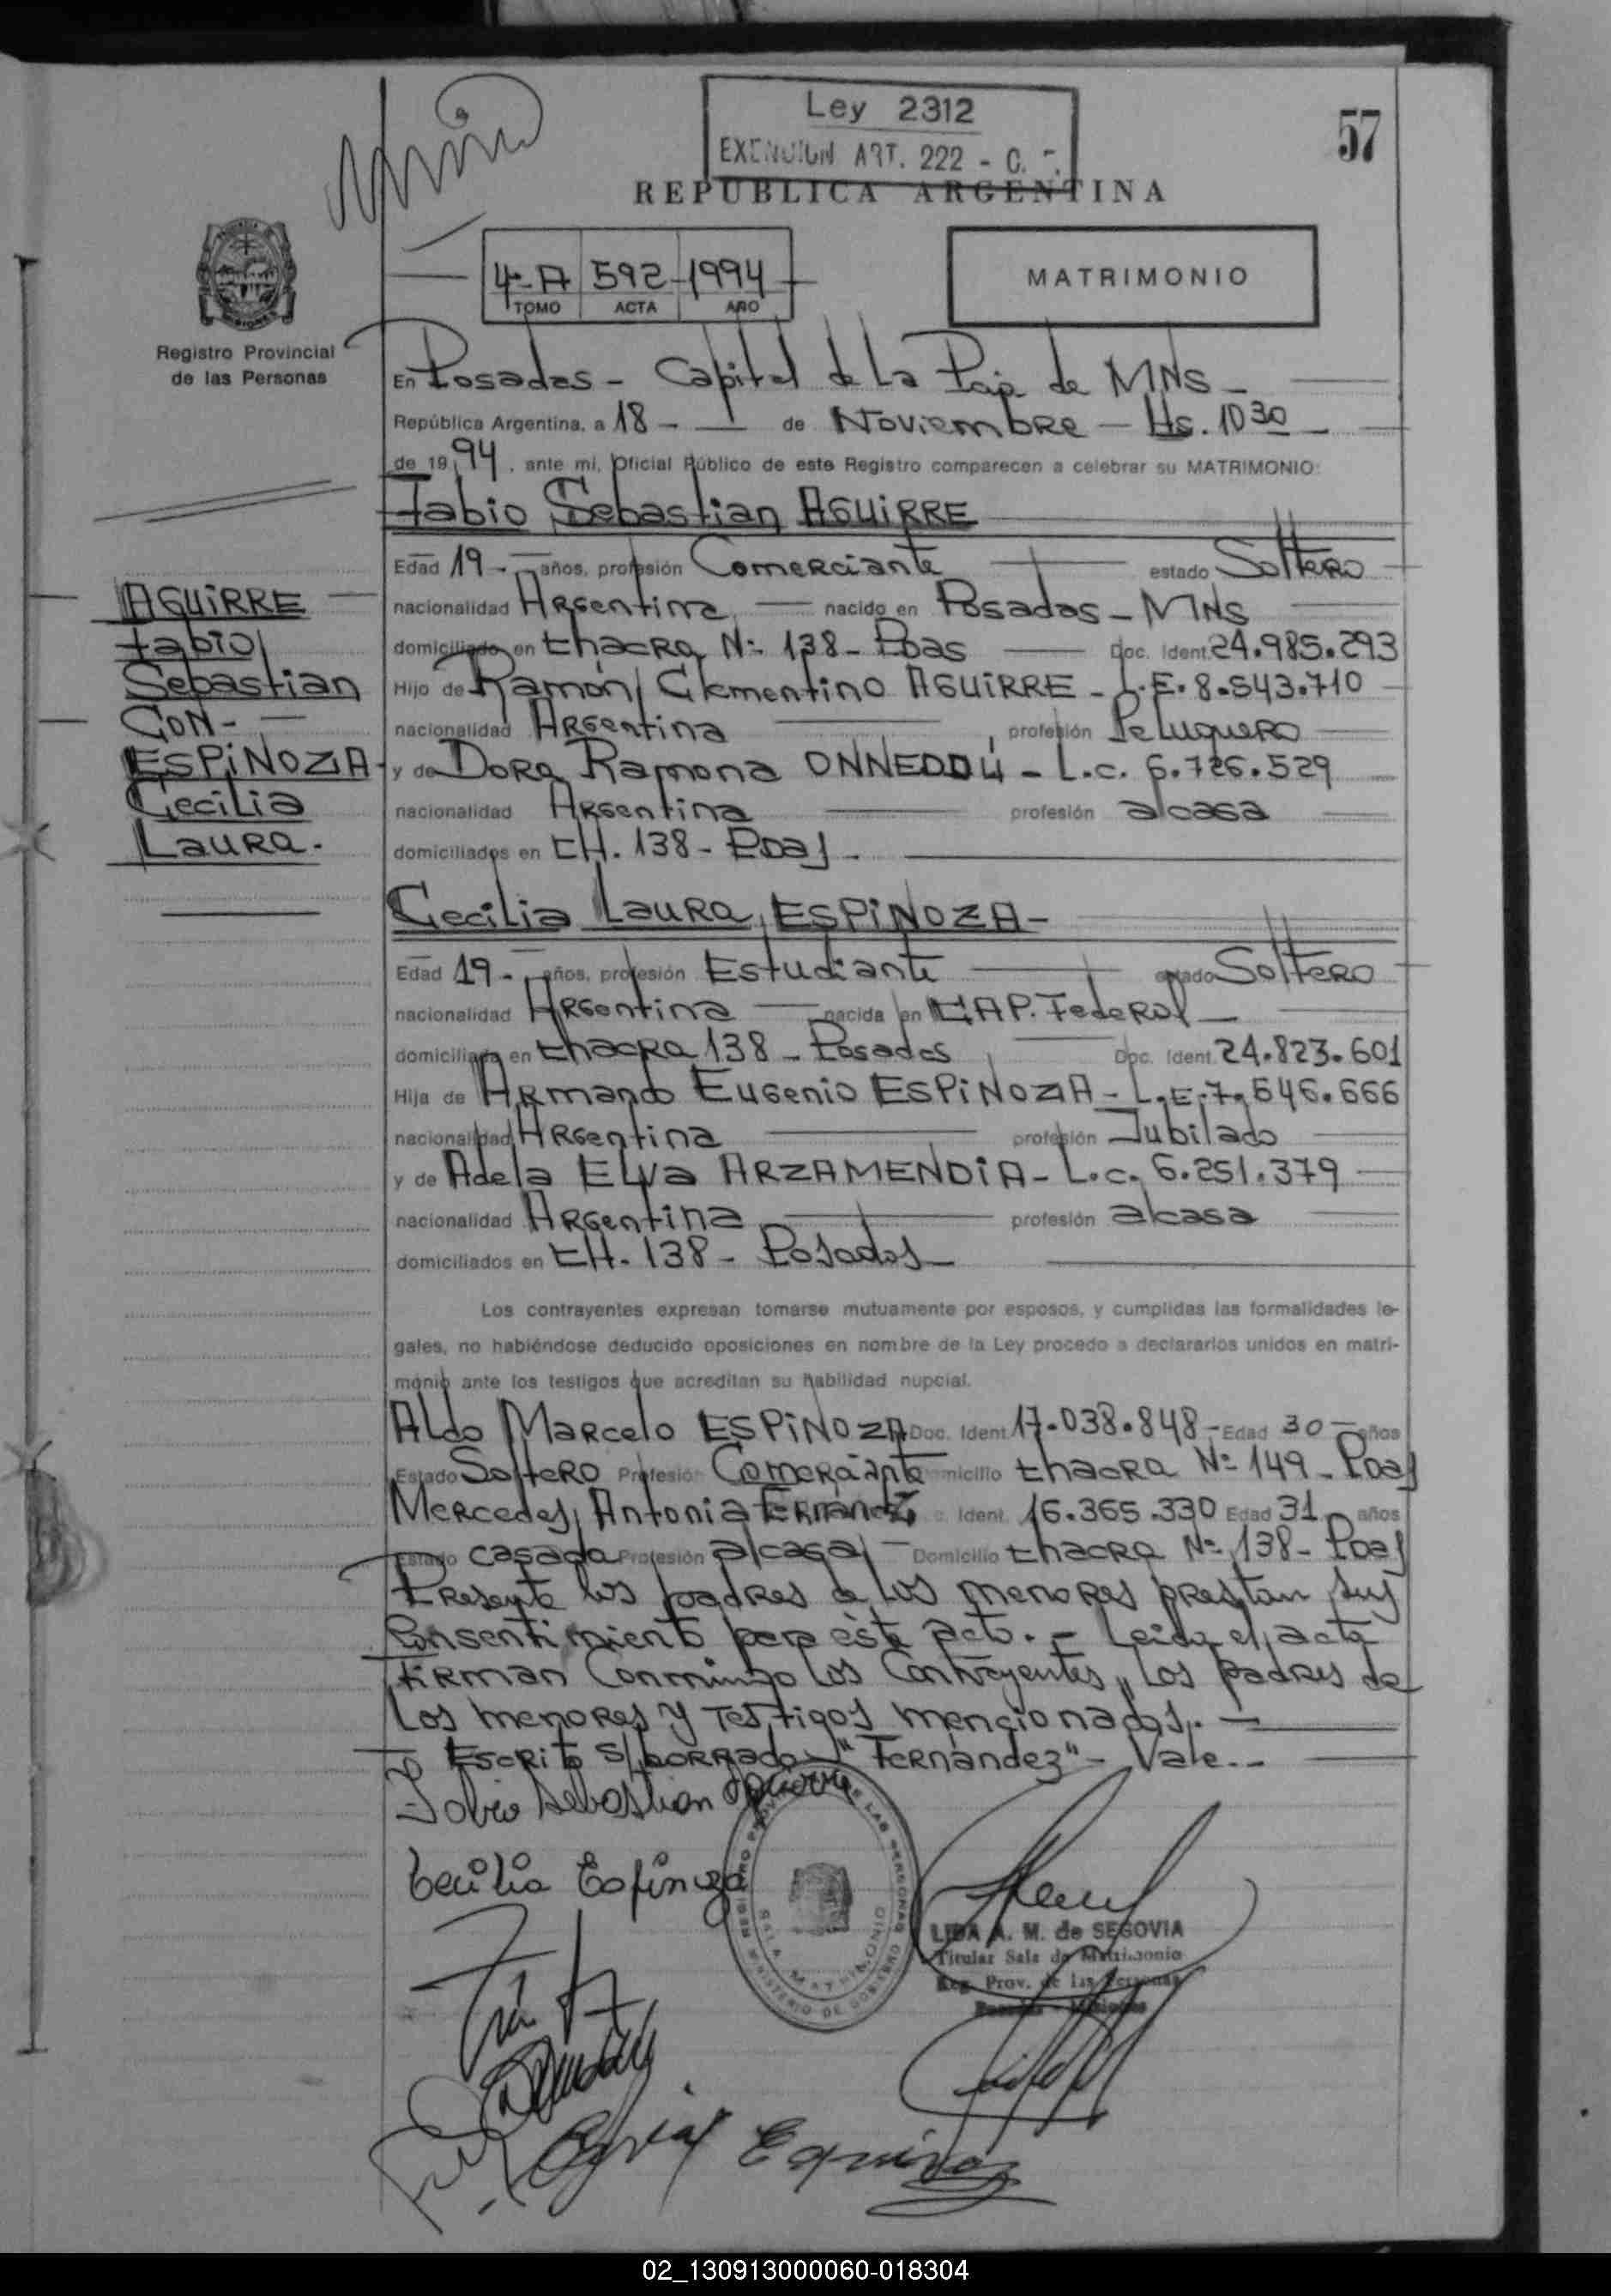 Ley 2312
EXENCION ART. 222 - C.
57
REPUBLICA ARGENTINA
4º A 592 1994
TOMO ACTA AÑO
MATRIMONIO
Registro Provincial
de las Personas
En Posadas - Capital de la Pcia de MNS -
República Argentina, a 18 - de Noviembre - Hs. 10 30
de 19 94, ante mí, Oficial Público de este Registro comparecen a celebrar su MATRIMONIO:
Fabio Sebastian AGUIRRE
Edad 19 - años, profesión Comerciante estado Soltero
nacionalidad Argentina nacido en Posadas - MNS
domiciliado en Chacra Nº 138 - Pdas Doc. Ident. 24.985.293
Hijo de Ramón Clementino AGUIRRE - L.E. 8.543.710
nacionalidad Argentina profesión Peluquero
y de Dora Ramona ONNEDDÚ - L.c. 6.726.529
nacionalidad Argentina profesión alcasa
domiciliados en CH. 138 - Pdas -
AGUIRRE
Fabio
Sebastian
CON -
ESPINOZA
Cecilia
Laura.
Cecilia Laura ESPINOZA -
Edad 19 - años, profesión Estudiante estado Soltero
nacionalidad Argentina nacida en CAP. Federal
domiciliada en Chacra 138 - Posadas Doc. Ident. 24.823.601
Hija de Armando Eugenio ESPINOZA - L.E. 7.546.666
nacionalidad Argentina profesión Jubilado
y de Adela Elva ARZAMENDIA - L.c. 6.251.379
nacionalidad Argentina profesión alcasa
domiciliados en CH. 138 - Posadas -
Los contrayentes expresan tomarse mutuamente por esposos, y cumplidas las formalidades le-
gales, no habiéndose deducido oposiciones en nombre de la Ley procedo a declararlos unidos en matri-
monio ante los testigos que acreditan su habilidad nupcial.
Aldo Marcelo ESPINOZA Doc. Ident. 17.038.848 - Edad 30 años
Estado Soltero Profesión Comerciante micilio Chacra Nº 149 - Pdas
Mercedes Antonia Fernández Ident. 16.365.330 Edad 31 años
Estado casada Profesión alcasa - Domicilio Chacra Nº 138 - Pdas
Presente los padres de los menores prestan sus
Consentimiento para este acto. - Leida el acta
firman Conmingo los Contrayentes, los padres de
los menores y testigos mencionados. -
Escrito s/borrado "Fernández" - Vale. -
Fabio Sebastian Aguirre
Cecilia Espinoza
REGISTRO PROVINCIAL DE LAS PERSONAS
SALA MATRIMONIO
MINISTERIO DE GOBIERNO
LIDA A. M. de SEGOVIA
Titular Sala de Matrimonio
Reg. Prov. de las Personas
Posadas - Misiones
02_130913000060-018304